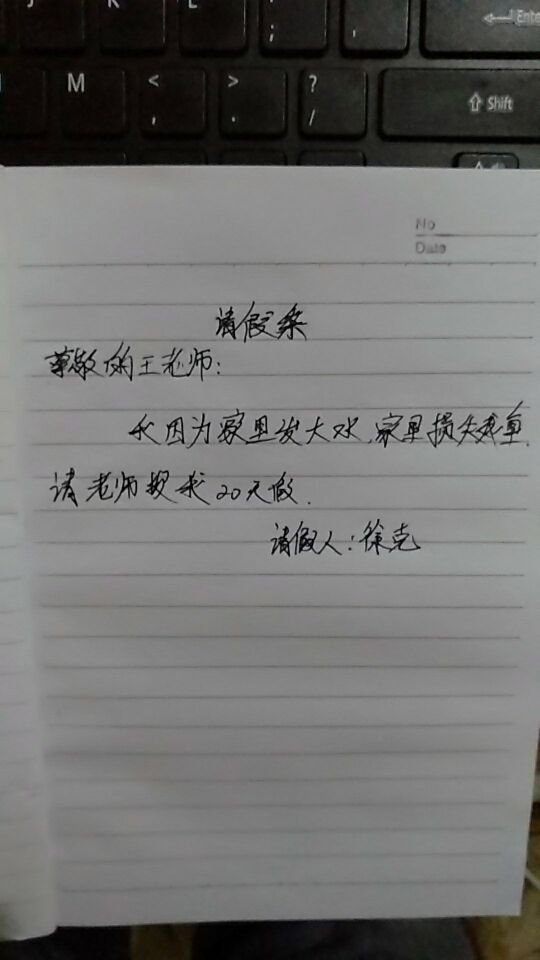 J K L : ; " ' Enter
M < , > . ? / Shift
No
Date
请假条
尊敬的王老师:
我因为家里发大水,家里损失我重.
请老师授我20天假.
请假人:徐克